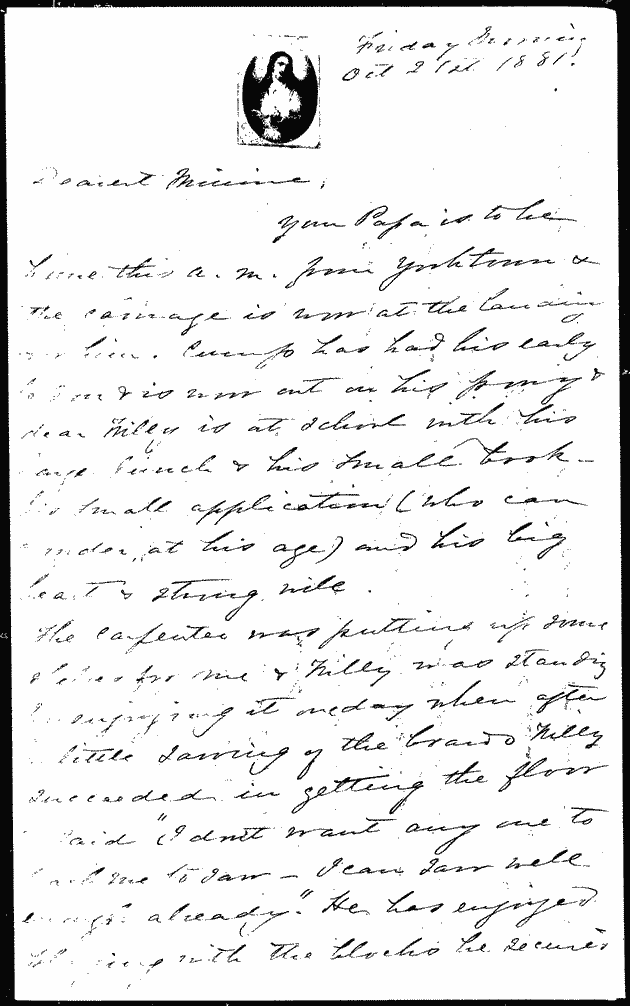 Friday Morning
Oct 21st 1881.
Dearest Minnie,
Your Papa is to be
home this a. m. from Yorktown &
the carriage is now at the landing
for him. has had his early
& is now out on his pony &
dear Filly is at school with his
large lunch & his small book -
his small application (who can
wonder, at his age) and his big
heart & strong will.
The carpenter was putting up some
shelves for me & Filly was standing
enjoying it one day when after
little sawing of the boards Filly
succeeded in getting the floor
& said "I don't want any one to
teach me to saw - I can saw well
enough already." He has enjoyed
playing with the blocks he secured